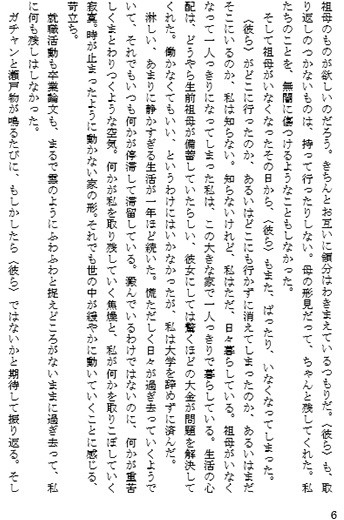 祖母のものが欲しいのだろう。きちんとお互いに領分はわきまえているつもりだ。〈彼ら〉も、取
り返しのつかないものは、持って行ったりしない。母の形見だって、ちゃんと残してくれた。私
たちのことを、無闇に傷つけるようなこともしなかった。
そして祖母がいなくなったその日から、〈彼ら〉もまた、ぱったり、いなくなってしまった。
〈彼ら〉がどこに行ったのか、あるいはどこにも行かずに消えてしまったのか、あるいはまだ
そこにいるのか、私は知らない。知らないけれど、私はただ、日々暮らしている。祖母がいなく
なって一人っきりになってしまった私は、この大きな家で一人っきりで暮らしている。生活の心
配は、どうやら生前祖母が備蓄していたらしい、彼女にしては驚くほどの大金が問題を解決して
くれた。働かなくてもいい、というわけにはいかなかったが、私は大学を辞めずに済んだ。
淋しい、あまりに静かすぎる生活が一年ほど続いた。慌ただしく日々が過ぎ去っていくようで
いて、それでもいつも何かが停滞して滞留している。澱んでいるわけではないのに、何かが重苦
しくまとわりつくような空気。何かが私を取り残していく焦燥と、私が何かを取りこぼしていく
寂寞。時が止まったように動かない家の形。それでも世の中が緩やかに動いていくことに感じる、
苛立ち。
就職活動も卒業論文も、まるで雲のようにふわふわと捉えどころがないままに過ぎ去って、私
に何も残しはしなかった。
ガチャンと瀬戸物が鳴るたびに、もしかしたら〈彼ら〉ではないかと期待して振り返る。そし
6